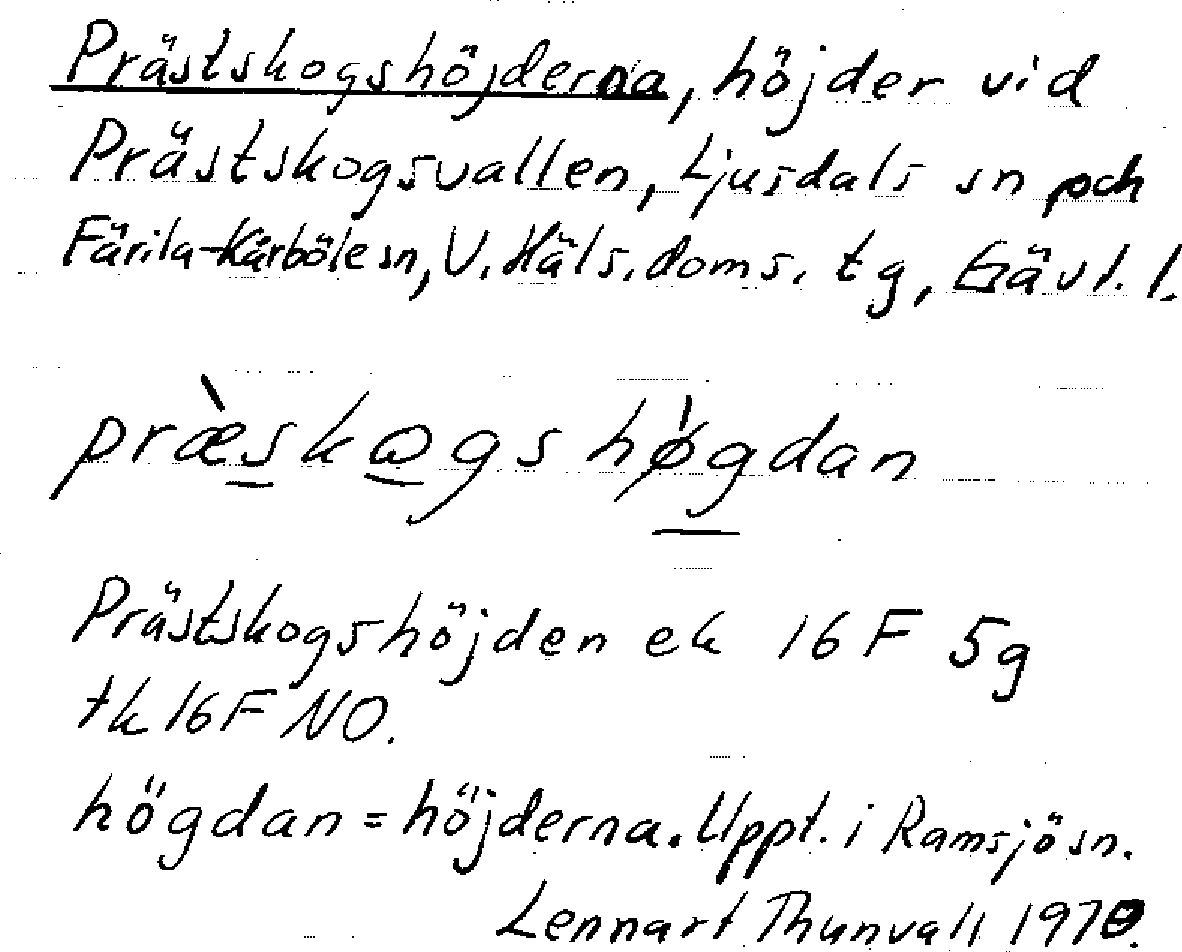 Prästskogshöjderna, höjder vid
Prästskogsvallen, Ljusdals sn och
Färila-Kårböle sn, V. Häls. doms. tg, Gävl. l.
præ̀skωgshø̀gdan
Prästskogshöjden ek 16 F 5g
tk 16 F NO.
högdan = höjderna. Uppt. i Ramsjö sn.
Lennart Thunvall